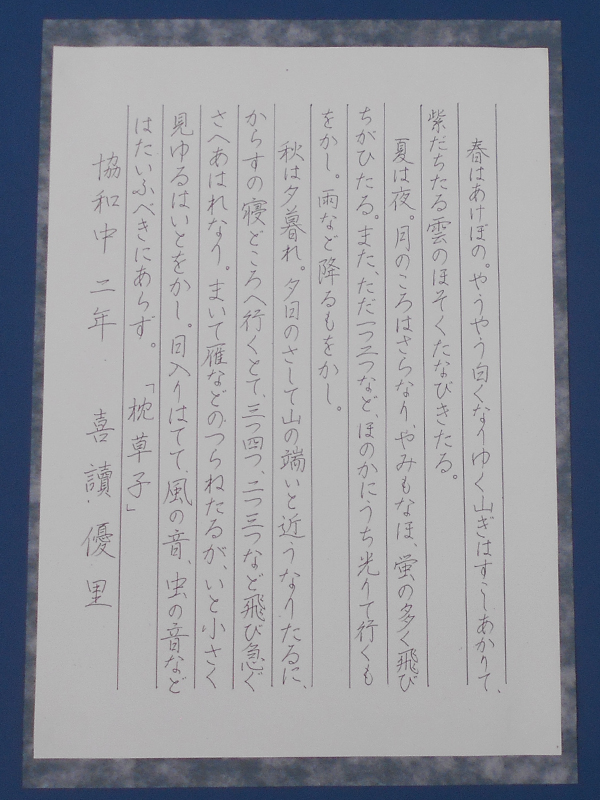 春はあけぼの。やうやう白くなりゆく山ぎはすこしあかりて、
紫だちたる雲のほそくたなびきたる。
夏は夜。月のころはさらなり、やみもなほ、蛍の多く飛び
ちがひたる。また、ただ一つ二つなど、ほのかにうち光りて行くも
をかし。雨など降るもをかし。
秋は夕暮れ。夕日のさして山の端いと近うなりたるに、
からすの寝どころへ行くとて、三つ四つ、二つ三つなど飛び急ぐ
さへあはれなり。まいて雁などのつらねたるが、いと小さく
見ゆるはいとをかし。日入りはてて、風の音、虫の音など
はたいふべきにあらず。「枕草子」
協和中 二年 喜讀優里